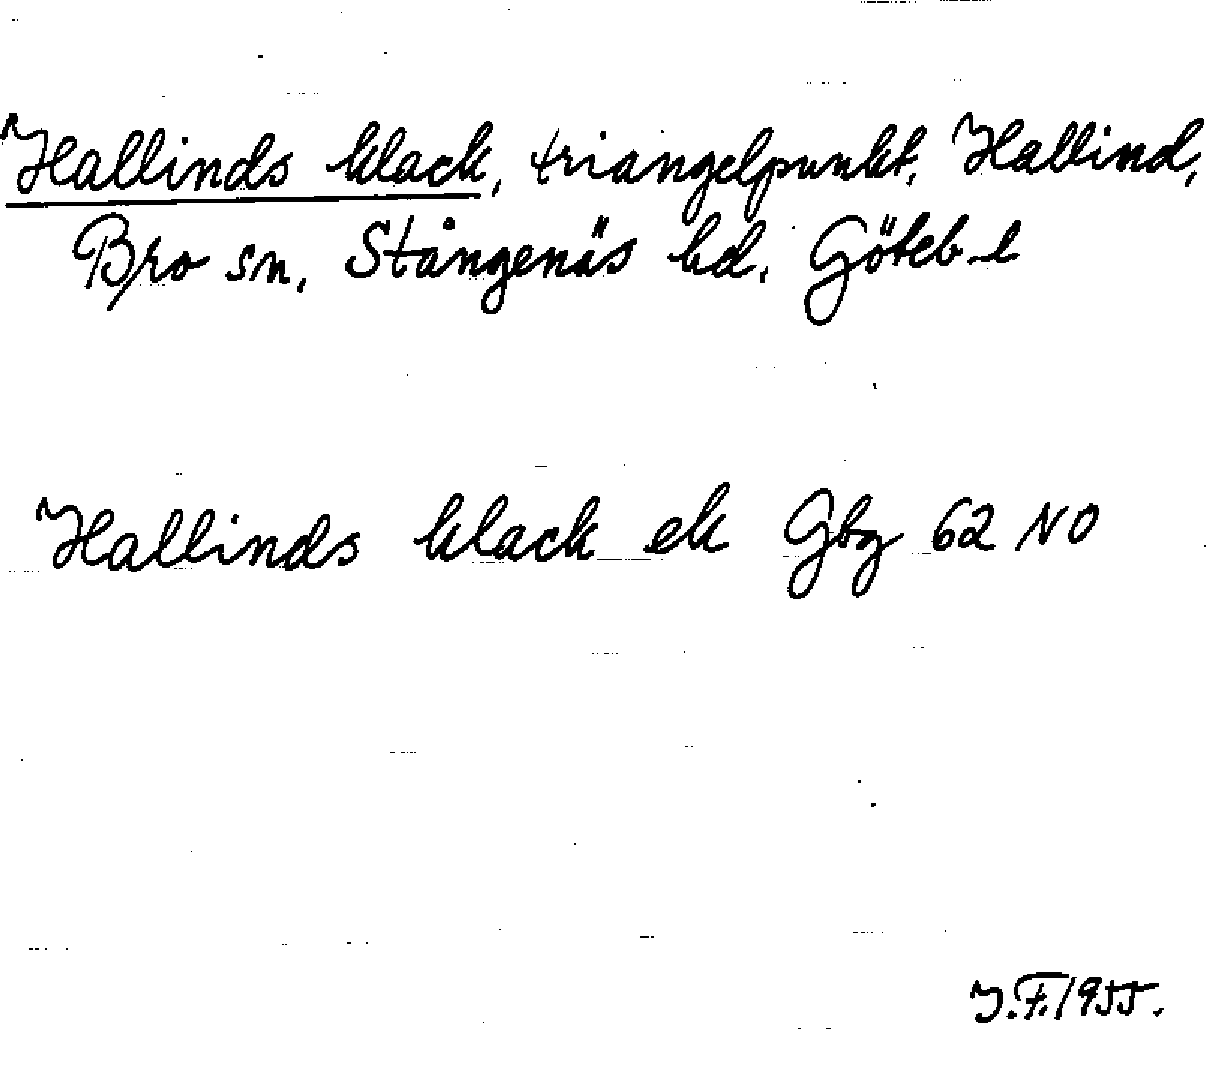 Hallinds klack, triangelpunkt, Hallind,
Bro sn, Stångenäs hd, Göteb. l
Hallinds klack ek Gbg 62 NO
J.F. 1955.